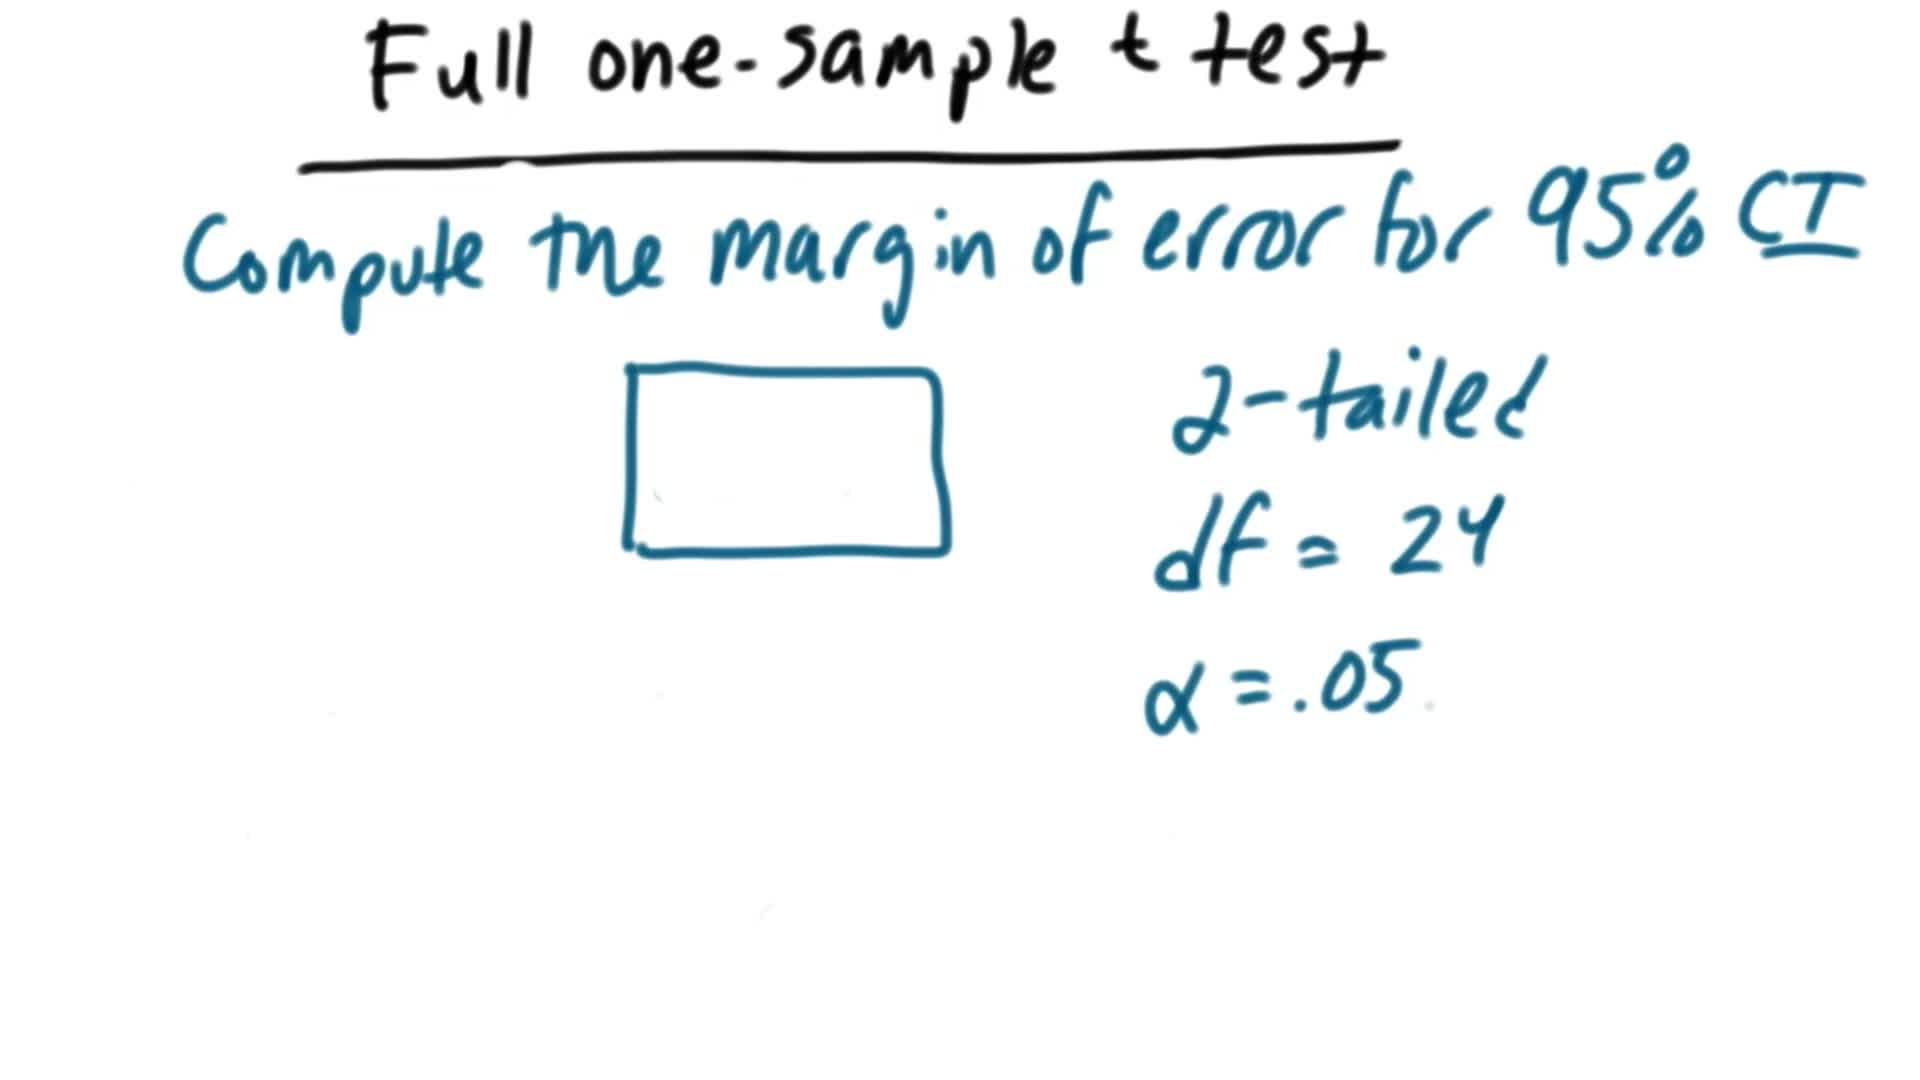 Full one-sample t test
Compute the margin of error for 95% CI
2-tailed
df = 24
α = .05